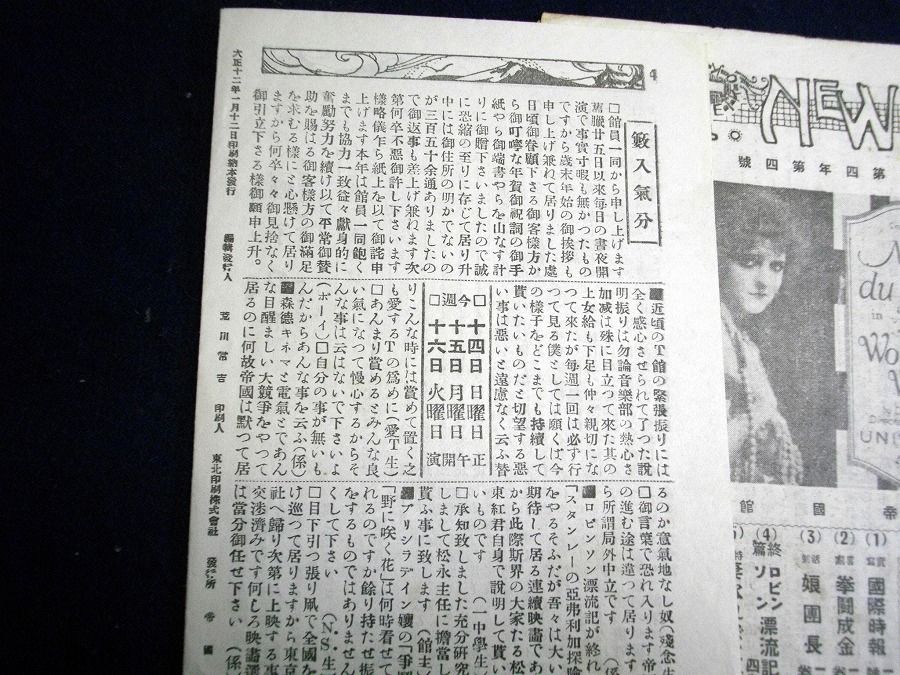 4
藪入氣分
□館員一同から申し上げます
舊臘廿五日以來毎日の晝夜開
演で事實寸暇も無かつたもの
ですから歳末年始の御挨拶も
申し上げ兼ねて居りました處
日頃御眷顧下さる御客樣方か
ら御叮嚀な年賀御祝詞の御手
紙やら御端書やらを山なす計
りに御贈下さいましたので誠
に恐縮の至りに存じて居り升
中には御住所の明かでないの
が三百五十余通ありましたの
で御返事も差上げ兼ねます次
第何卒不惡御許し下さいます
樣略儀乍ら紙上を以て御詫申
上げます本年は館員一同飽く
までも協力一致益々獻身的に
奮勵努力を續け以て平常御賛
助を賜はる御客樣方の御滿足
を求むる樣にと心懸けて居り
ますから何卒々々御見捨なく
御引立下さる樣御願申上升。
■近頃のT館の緊張振りには
全く感心させられて了つた說
明振りは勿論音樂部の熱心さ
加減は殊に目立つて來た其の
上女給も下足も仲々親切にな
つて來たが毎週一回は必ず行
つて見る僕としては願くば今
の樣子をどこまでも持續して
貰いたいものだと切望する惡
い事は惡いと遠慮なく云ふ替
□十四日 日曜日 正
今 十五日 月曜日 午
週 十六日 火曜日 開
□ 演
りこんな時には賞めて置く之
も愛するTの爲めに(愛T生)
□あんまり賞めるとみんな良
い氣になつて慢心するからそ
んな事は云はないで下さいよ
(ボーイ)□自分の事が無いも
んだからあんな事を云ふ(係)
■森德キネマと電氣とであん
な目醒ましい大競爭をやつて
居るのに何故帝國は默つて居
るのか意氣地なし奴(殘念生
□御言葉で恐れ入ります帝
の進む途は違つて居ります
ら所謂局外中立です (係
■ロビンソン漂流記が終れ
「スタンレーの亞弗利加探險
をやるそふだが吾々は大い
期待して居る連續映畵であ
から此際斯界の大家たる松
東紅君自身で說明して貰い
いものです (一中學生
□承知致しました充分研究
しまして松永主任に擔當し
貰ふ事に致します (館主
■プリシラデイン孃の「爭鬪
「野に咲く花」は何時見せて
れるのですか餘り持たせ振
をするものではありません
くして下さい (N.S.生
□目下引つ張り凧で全國を
け巡つて居りますから東京
社へ歸り次第に上映する事
交渉濟みです何しろ映畵選
は當分御任せ下さい (係
大正十二年一月十二日印刷納本發行 編輯發行人 荒川常吉 印刷人 東北印刷株式會社 發行所 帝國
NEW
第四年第四號
du
in
Wo
UNI
帝國館
(1) 實寫 國際時報
(2) 喜劇 拳鬪成金
(3) 活劇 娘團長
(4) 終篇 ロビンソン漂流記